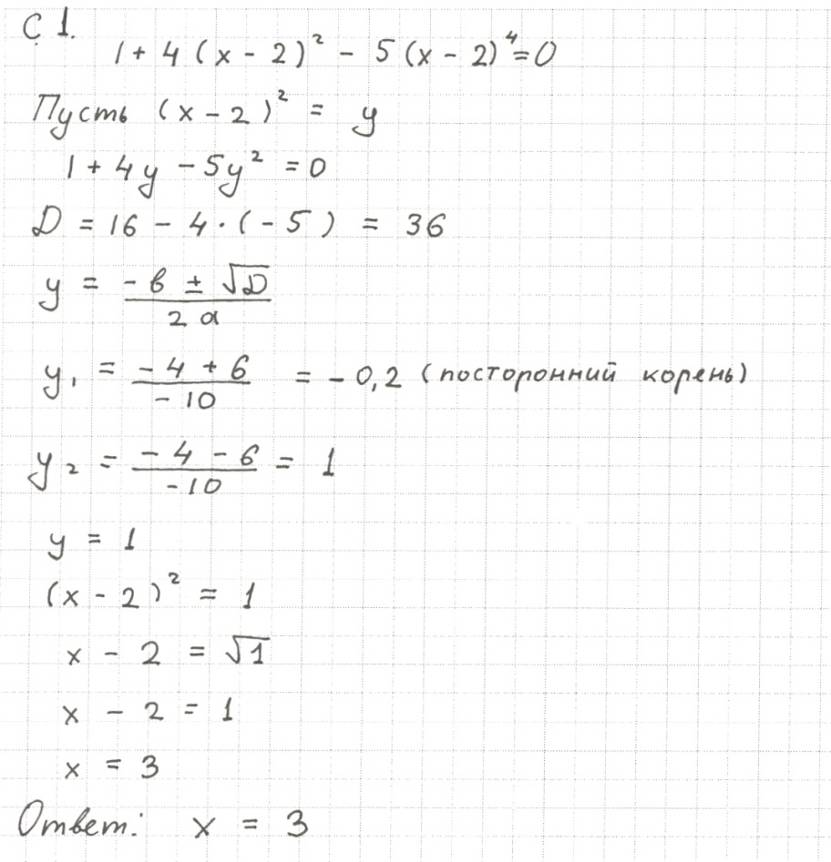 С 1.
1 + 4 (x - 2)² - 5 (x - 2)⁴ = 0
Пусть (x - 2)² = y
1 + 4y - 5y² = 0
D = 16 - 4 · (-5) = 36
y = (-b ± √D) / 2a
y₁ = (-4 + 6) / -10 = -0,2 (посторонний корень)
y₂ = (-4 - 6) / -10 = 1
y = 1
(x - 2)² = 1
x - 2 = √1
x - 2 = 1
x = 3
Ответ: x = 3